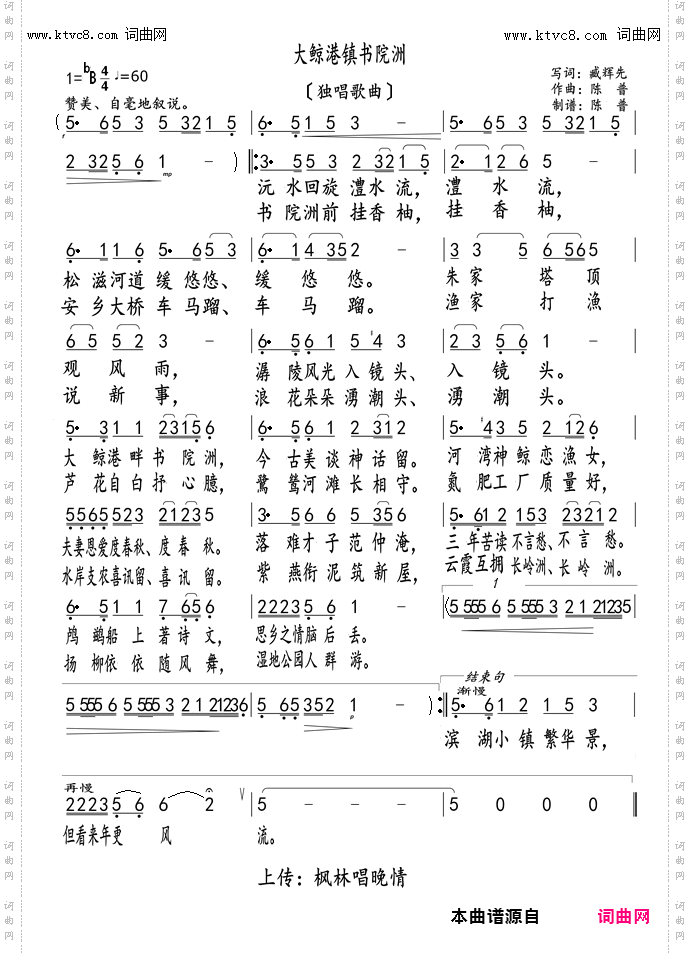 www.ktvc8.com 词曲网
www.ktvc8.com 词曲网
大鲸港镇书院洲
1=bB 4/4 ♩=60
〔独唱歌曲〕
写词：臧辉先
作曲：陈 普
制谱：陈 普
赞美、自毫地叙说。
(5· 6 5 3 5 3 2 1 5 | 6· 5 1 5 3 - | 5· 6 5 3 5 3 2 1 5 |
2 3 2 5 6 1 - ) 3· 5 5 3 2 3 2 1 5 | 2· 1 2 6 5 - |
沅 水回旋 澧水 流， 澧 水 流，
书 院洲前 挂香 柚， 挂 香 柚，
6· 1 1 6 5· 6 5 3 | 6· 1 4 3 5 2 - | 3 3 5 6 5 6 5 |
松 滋河道 缓 悠悠、 缓 悠 悠。 朱 家 塔 顶
安 乡大桥 车 马蹓、 车 马 蹓。 渔 家 打 渔
6 5 5 2 3 - | 6· 5 6 1 5 4 3 | 2 3 5 6 1 - |
观 风 雨， 潺 陵风光 入 镜 头、 入 镜 头。
说 新 事， 浪 花朵朵 湧 潮头、 湧 潮 头。
5· 3 1 1 2 3 1 5 6 | 6· 5 6 1 2 3 1 2 | 5· 4 3 5 2 1 2 6 |
大 鲸港畔 书 院 洲， 今 古美谈 神 话 留。 河 湾神鲸 恋 渔 女，
芦 花自白 抒 心 臆， 鷺 鸶河滩 长 相 守。 氮 肥工厂 质 量 好，
5 5 6 5 5 2 3 2 1 2 3 5 | 3· 5 6 6 5 3 5 6 | 5· 6 1 2 1 5 3 2 3 2 1 2 |
夫妻恩爱度春秋、度 春 秋。 落 难才子 范 仲 淹， 三 年苦读 不言愁、不 言 愁。
水岸支农喜讯留、喜 讯 留。 紫 燕衔泥 筑 新 屋， 云霞互拥 长岭洲、长 岭 洲。
6· 5 1 1 7 6 5 6 | 2 2 2 3 5 6 1 - | (5 5 5 5 6 5 5 5 5 3 2 1 2 1 2 3 5 |
鸬 鹚船 上 著 诗 文， 思乡之情脑 后 丢。
扬 柳依 依 随 风 舞， 湿地公园人 群 游。
1
5 5 5 5 6 5 5 5 5 3 2 1 2 1 2 3 6 | 5 6 5 3 5 2 1 - ) 5· 6 1 2 1 5 3 |
结束句
渐慢
滨 湖小 镇 繁华 景，
再慢
2 2 2 3 5 6 6 2 | 5 - - - | 5 0 0 0
但看来年更 风 流。
上传：枫林唱晚情
本曲谱源自 词曲网